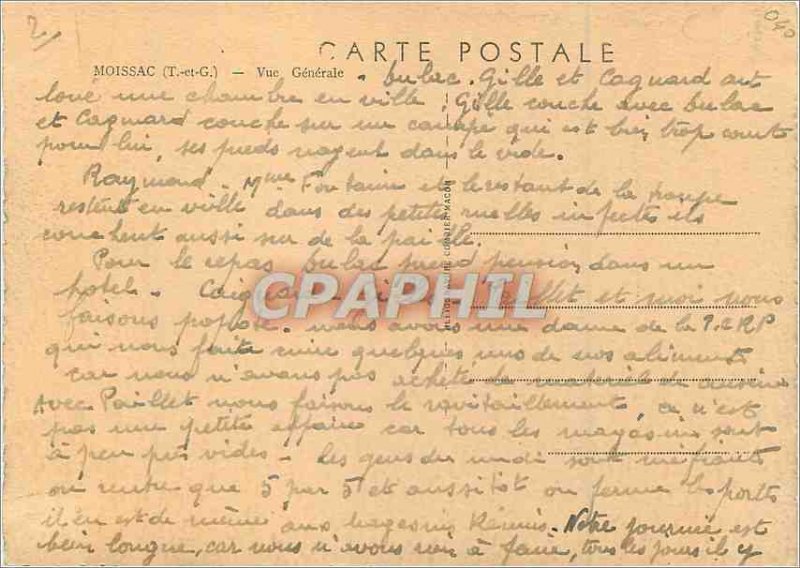 2/
040
CARTE POSTALE
MOISSAC (T.-et-G.) — Vue Générale
- Bulac. Gille et Cagnard ont
loué une chambre en ville. Gille couche avec Bulac
et Cagnard couche sur un canapé qui est bien trop court
pour lui, ses pieds nagent dans le vide.
Raymond - Mme Fontaine et le restant de la troupe
restent en ville dans des petites ruelles infectes ils
couchent aussi sur de la paille.
Pour le repas Bulac prend pension dans un
hotel - Paillet et moi nous
CPAPHIL
faisons popote. nous avons une dame de la T.C.R.P
qui nous faite cuire quelques uns de nos aliments
car nous n'avons pas acheté de matériel de cuisine
Avec Paillet nous faisons le ravitaillement, ce n'est
pas une petite affaire car tous les magasins sont
à peu près vides - les gens du midi sont méfiants
on rentre que 5 par 5 et aussitot on ferme les portes
il en est de même aux magasins Réunis. Notre journée est
bien longue, car nous n'avons rien à faire, tous les jours il y